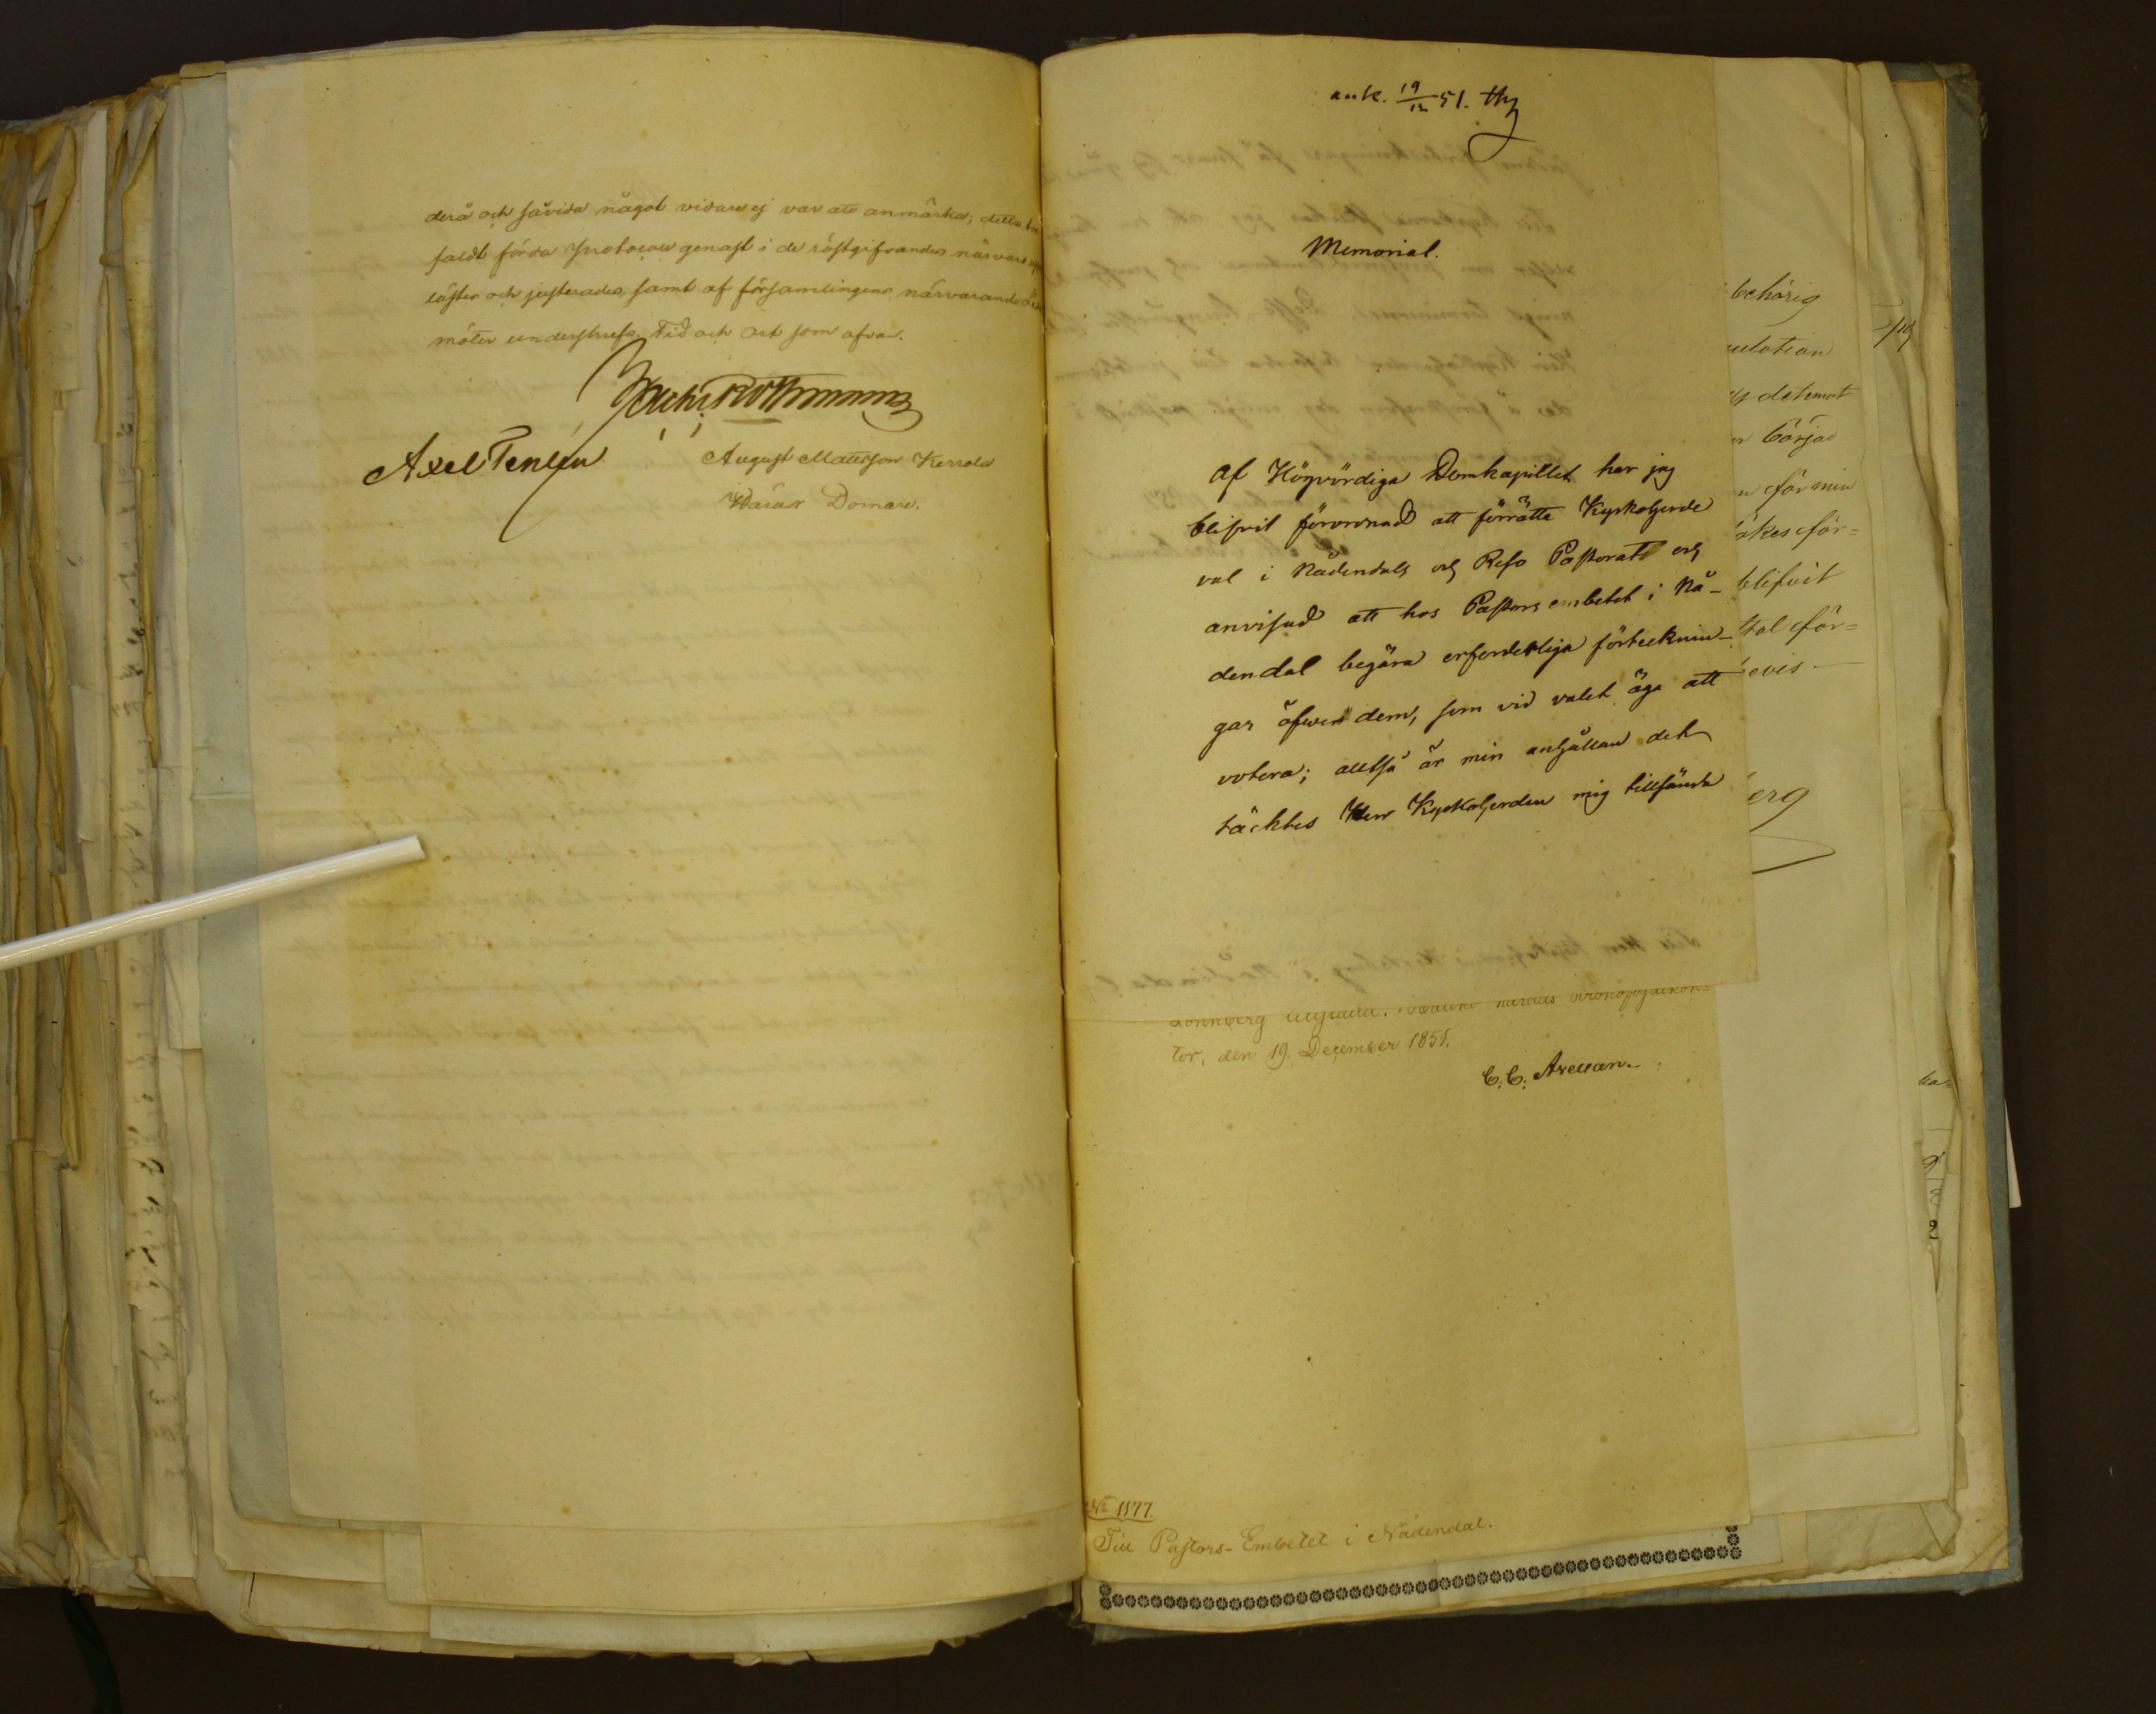 derå och såvida något vidare ej var att anmärka, detta
faldt förda Protocoll genast i de röstgifvandes närvaro
lästes och justerades, samt af församlingens närvarande
möter underskrefs. Tid och Ort som ofvan.
Axel
August Mattsson Kerrola
Härads Domare.
ank. 19/12 51.
Memorial.
Af Högvördiga Domkapitlet har jag
blifvit förordnad att förrätta Kyrkoherde
val i Nådendals och Reso Pastorat och
anvisad att hos Pastorsembetet i Nå-
dendal begära erforderliga förtecknin-
gar öfwer dem, som vid valet äga att
votera; alltså är min anhållan det
täcktes Herr Kyrkoherden mig tillsända
behörig
ulation
detemot
börjad
för min
ökes för=
blifvit
tal för=
evis
erg
Lönnberg
tor, den 19. December 1851.
C. C. Arellan.
No 1177.
Till Pastors-Embetet i Nådendal.